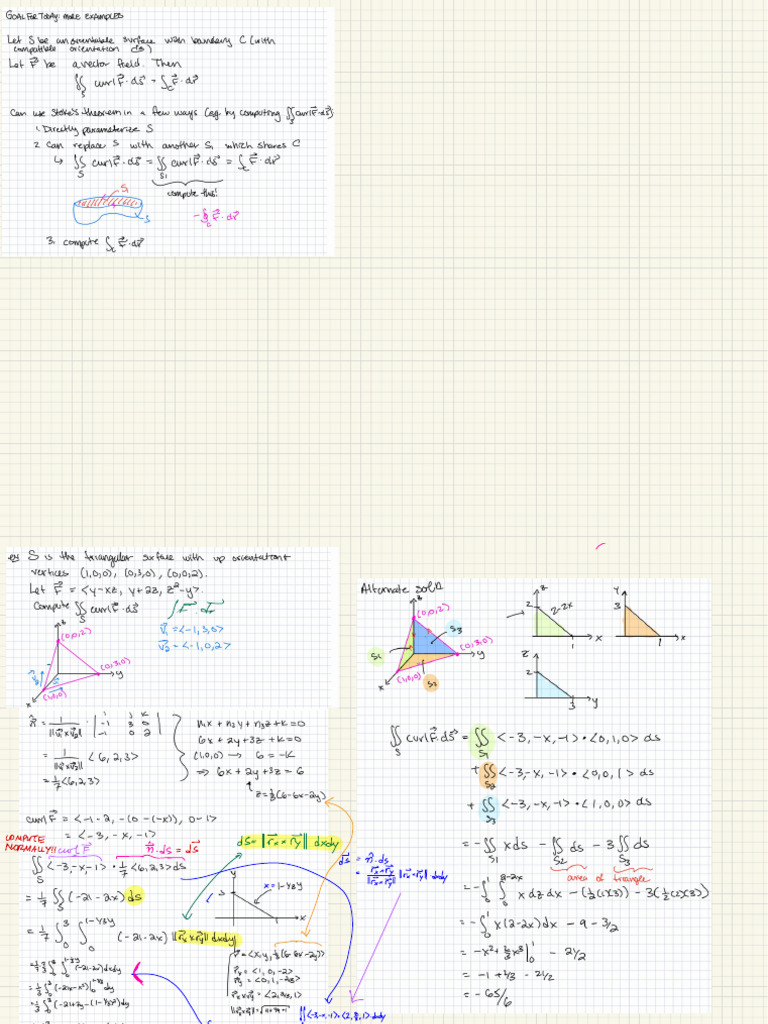 GOAL FOR TODAY: MORE EXAMPLES
Let S be an orientable surface with boundary C (with
compatible orientation
Let F⃗ be a vector field. Then
∬_S curl F⃗·dS⃗ = ∫_C F⃗·dr⃗
Can use Stoke's theorem in a few ways (eg. by computing ∬_S curl F⃗·dS⃗):
1. Directly parameterize S
2. Can replace S with another S₁ which shares C
↳ ∬_S curl F⃗·dS⃗ = ∬_S1 curl F⃗·dS⃗ = ∫_C F⃗·dr⃗
compute this!
S₁
S
-∮_C F⃗·dr⃗
3. compute ∫_C F⃗·dr⃗
ex S is the triangular surface with up orientation +
vertices (1,0,0), (0,3,0), (0,0,2).
Let F⃗ = <y-xz, y+2z, z²-y>
Compute ∬_S curl F⃗·dS⃗
∫F⃗·dr⃗
z
(0,0,2)
(0,3,0)
y
(1,0,0)
x
v⃗₁ = <-1,3,0>
v⃗₂ = <-1,0,2>
n̂ = 1/||v⃗₁×v⃗₂|| · | i j k |
| -1 3 0 |
| -1 0 2 |
= 1/||v⃗₁×v⃗₂|| <6,2,3>
= 1/7 <6,2,3>
n₁x + n₂y + n₃z + k = 0
6x + 2y + 3z + k = 0
(1,0,0) → 6 = -k
⇒ 6x + 2y + 3z = 6
z = 1/3(6-6x-2y)
curl F⃗ = <-1-2, -(0-(-x)), 0-1>
= <-3, -x, -1>
COMPUTE
NORMALLY!!
curl F⃗
n̂·dS = dS⃗
∬_S <-3,-x,-1> · 1/7 <6,2,3> dS
= 1/7 ∬_S (-21-2x) dS
= 1/7 ∫₀³ ∫₀^(1-1/3y) (-21-2x) ||r⃗x×r⃗y|| dxdy
dS = ||r⃗x×r⃗y|| dxdy
y
3
x = 1-1/3y
x
r⃗ = <x,y,1/3(6-6x-2y)>
r⃗x = <1,0,-2>
r⃗x×r⃗y = <2,2/3,1>
dS⃗ = n̂·dS
= r⃗x×r⃗y/||r⃗x×r⃗y|| ||r⃗x×r⃗y|| dxdy
∬<-3,-x,-1>·<2,2/3,1>dxdy
Alternate sol'n
z
(0,0,2)
S₁
S₃
(0,3,0)
y
S₂
(1,0,0)
x
z
2
2-2x
1
x
y
3
1
x
z
2
3
y
∬_S curl F⃗·dS⃗ = ∬_S1 <-3,-x,-1>·<0,1,0> dS
+ ∬_S2 <-3,-x,-1>·<0,0,1> dS
+ ∬_S3 <-3,-x,-1>·<1,0,0> dS
= -∬_S1 x dS - ∬_S2 dS - 3∬_S3 dS
area of triangle
= -∫₀¹ ∫₀^(2-2x) x dz dx - (1/2(1)(3)) - 3(1/2(2)(3))
= -∫₀¹ x(2-2x)dx - 9 - 3/2
= -x² + 2/3x³ |₀¹ - 21/2
= -1 + 2/3 - 21/2
= -65/6